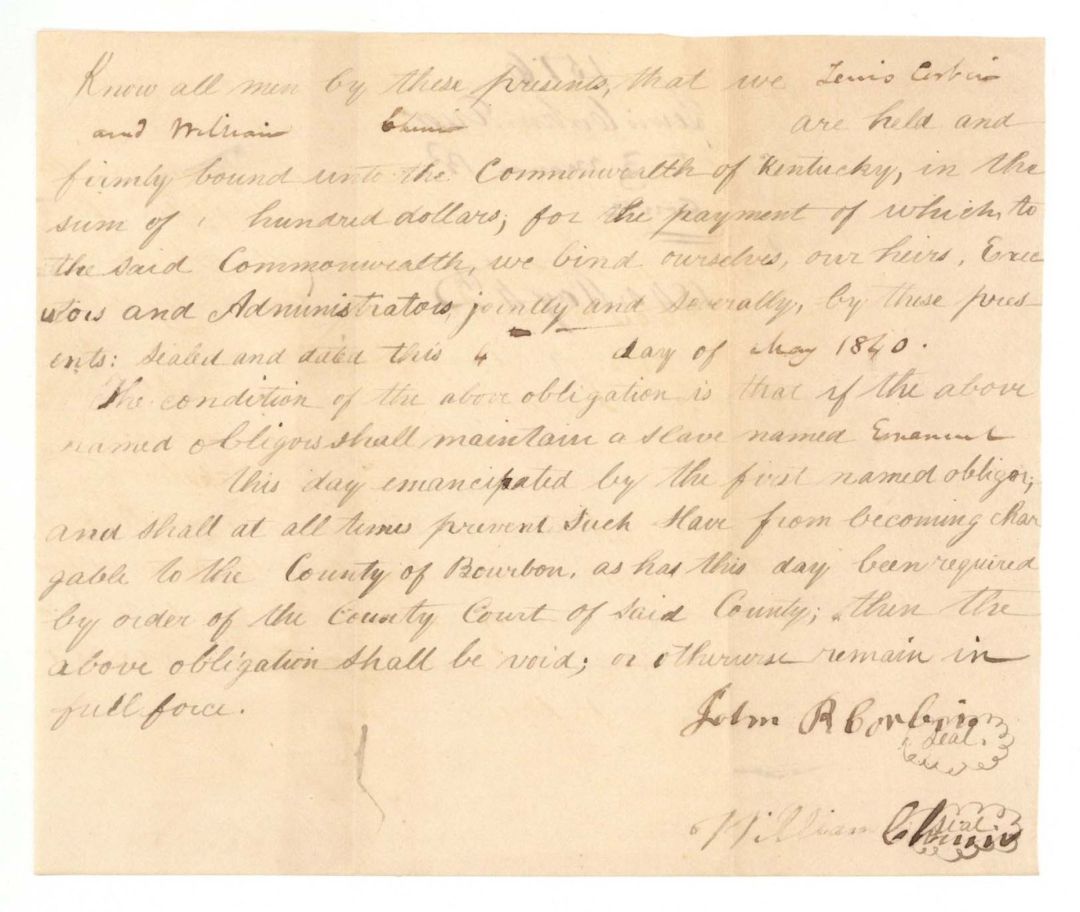 Know all men by these presents, that we Lewis Corbin
and William Chinn are held and
firmly bound unto the Commonwealth of Kentucky, in the
sum of hundred dollars, for the payment of which, to
the said Commonwealth, we bind ourselves, our heirs, Exec
utors and Administrators, jointly and severally, by these pres
ents: sealed and dated this 4 day of May 1840.
The condition of the above obligation is that if the above
named obligors shall maintain a slave named Emanuel
this day emancipated by the first named obligor;
and shall at all times prevent such slave from becoming char
gable to the County of Bourbon, as has this day been required
by order of the County Court of said County; then the
above obligation shall be void; or otherwise remain in
full force.
John R Corbin
Seal.
William Chinn
Seal.